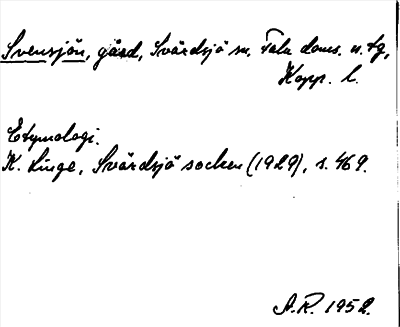 Svensjön, gård, Svärdsjö sn. Falu doms. n. tg,
Kopp. l.
Etymologi.
K. Linge, Svärdsjö socken (1929), s. 469.
A.R. 1952.